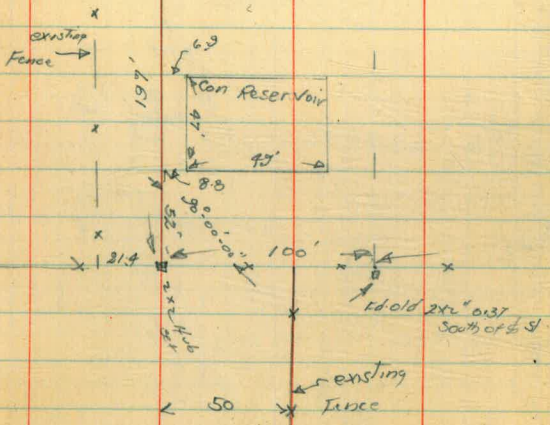 existing
Fence
6.9
197'
Con Reservoir
47'
49'
8.8
90°-00'-00"
52'
21.4
100'
2x2 Hub
set
Fd. old 2x2" 0.37
South of
existing
Fence
50